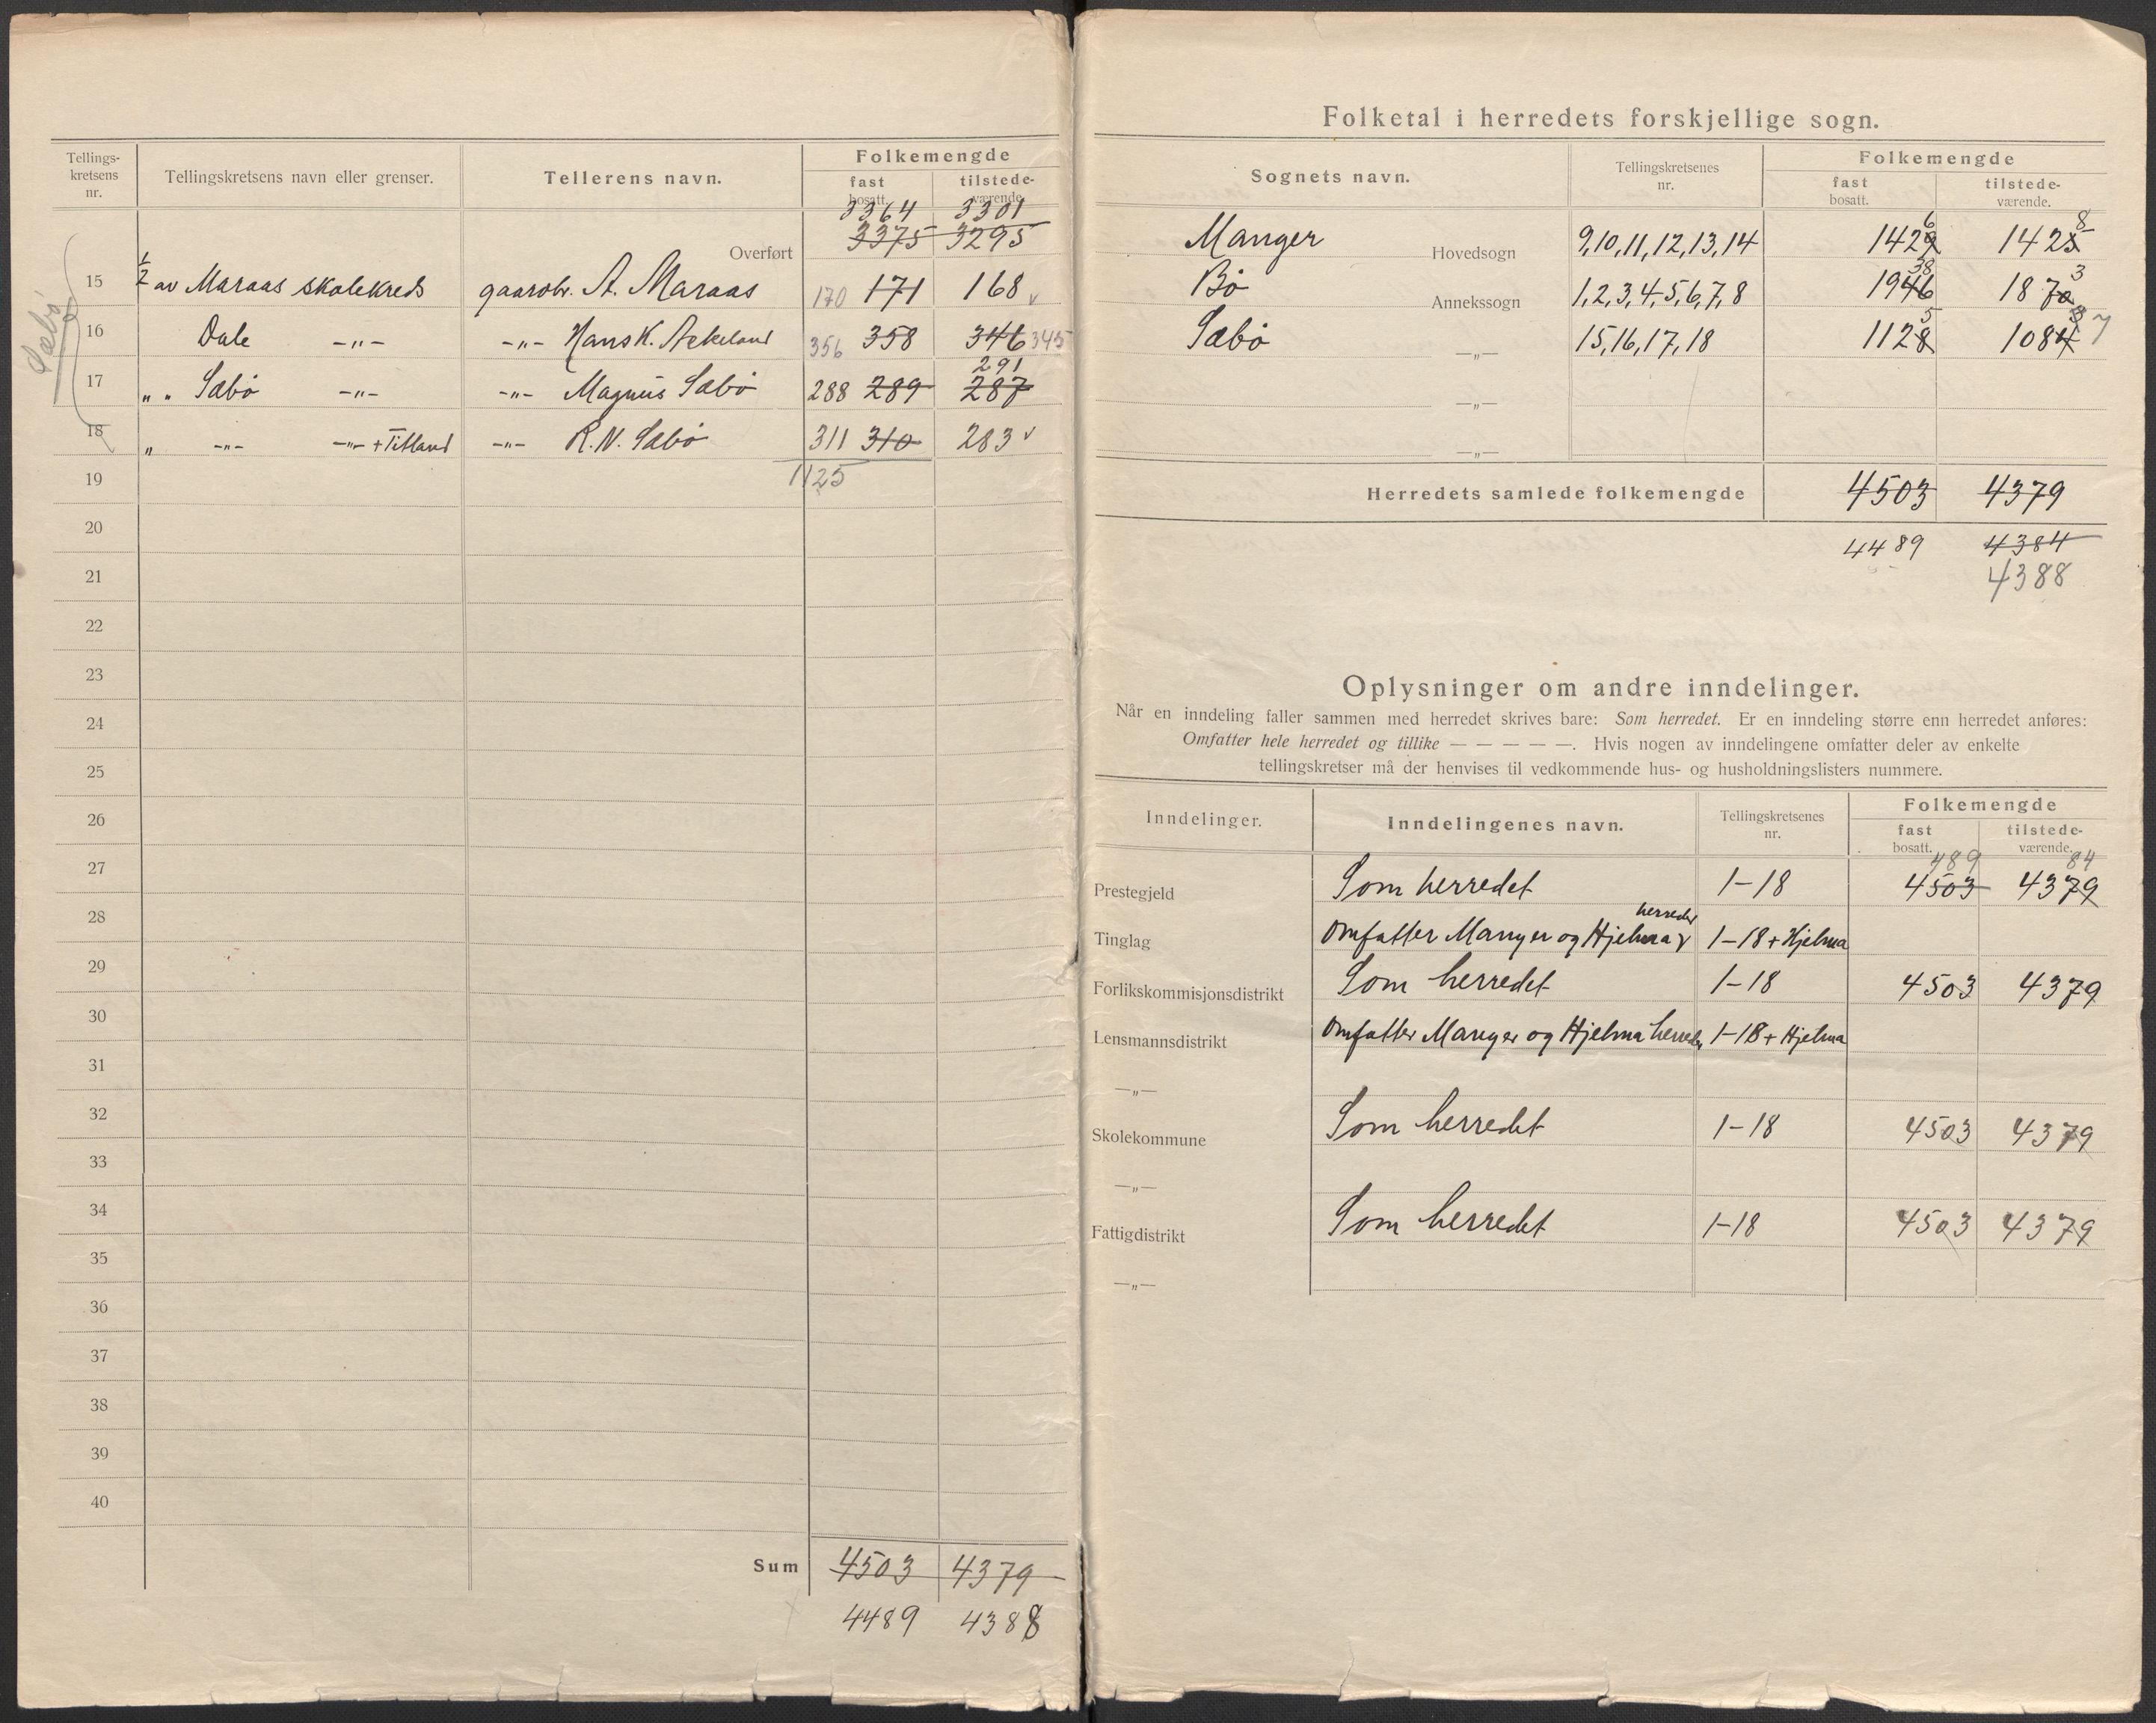 Tellings-kretsens nr. Tellingskretsens navn eller grenser. Tellerens navn. Folkemengde
fast bosatt. tilstede-værende.
3364 3301
Overført 3375 3295
15 1/2 av Maraas skolekreds gaardbr. A. Maraas 170 171 168 v
Sæbø
16 Dale -"- -"- Hans K. Askeland 356 358 346 345
291
17 " " Sæbø -"- -"- Magnus Sæbø 288 289 287
18 " -"- -"- + Titland -"- R. N. Sæbø 311 310 283 v
19 1125
20
21
22
23
24
25
26
27
28
29
30
31
32
33
34
35
36
37
38
39
40
Sum 4503 4379
4489 4388
Folketal i herredets forskjellige sogn.
Sognets navn. Tellingskretsenes nr. Folkemengde
fast bosatt. tilstede-værende.
6 8
Manger Hovedsogn 9,10,11,12,13,14 1429 1425
38 3
Bø Annekssogn 1,2,3,4,5,6,7,8 1946 1870
5 3
Sæbø —„— 15,16,17,18 1128 1084 7
—„—
—„—
Herredets samlede folkemengde 4503 4379
4489 4384
4388
Oplysninger om andre inndelinger.
Når en inndeling faller sammen med herredet skrives bare: Som herredet. Er en inndeling større enn herredet anføres:
Omfatter hele herredet og tillike — — — — —. Hvis nogen av inndelingene omfatter deler av enkelte
tellingskretser må der henvises til vedkommende hus- og husholdningslisters nummere.
Inndelinger. Inndelingenes navn. Tellingskretsenes nr. Folkemengde
fast bosatt. tilstede-værende.
489 84
Prestegjeld Som herredet 1-18 4503 4379
herreder
Tinglag Omfatter Manger og Hjelma 1-18 + Hjelma
Forlikskommisjonsdistrikt Som herredet 1-18 4503 4379
Lensmannsdistrikt Omfatter Manger og Hjelma herreder 1-18 + Hjelma
—„—
Skolekommune Som herredet 1-18 4503 4379
—„—
Fattigdistrikt Som herredet 1-18 4503 4379
—„—